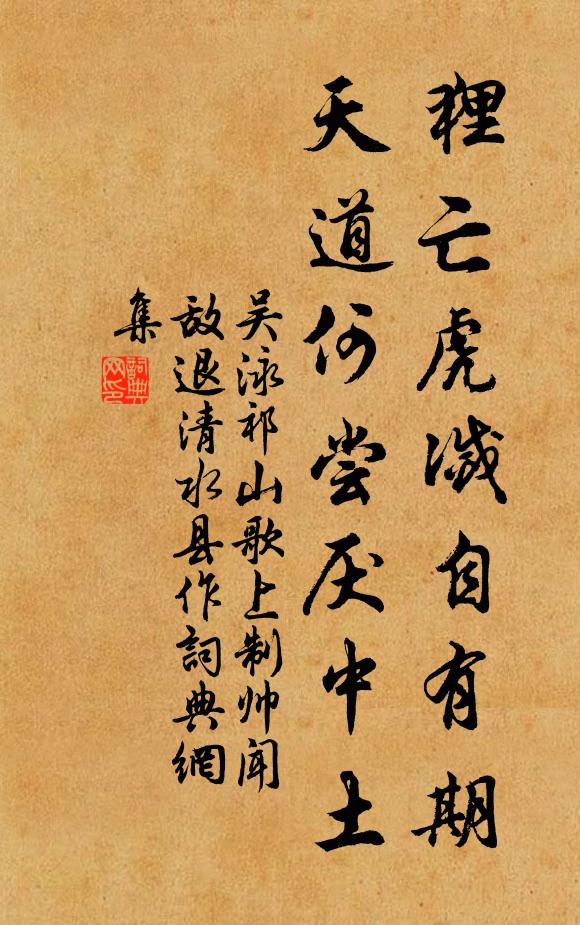 狸亡虎滅自有期
天道何尝厌中土
吴泳祁山歌上制帅闻
敌退清水县作詞典網
集
詞典
网印